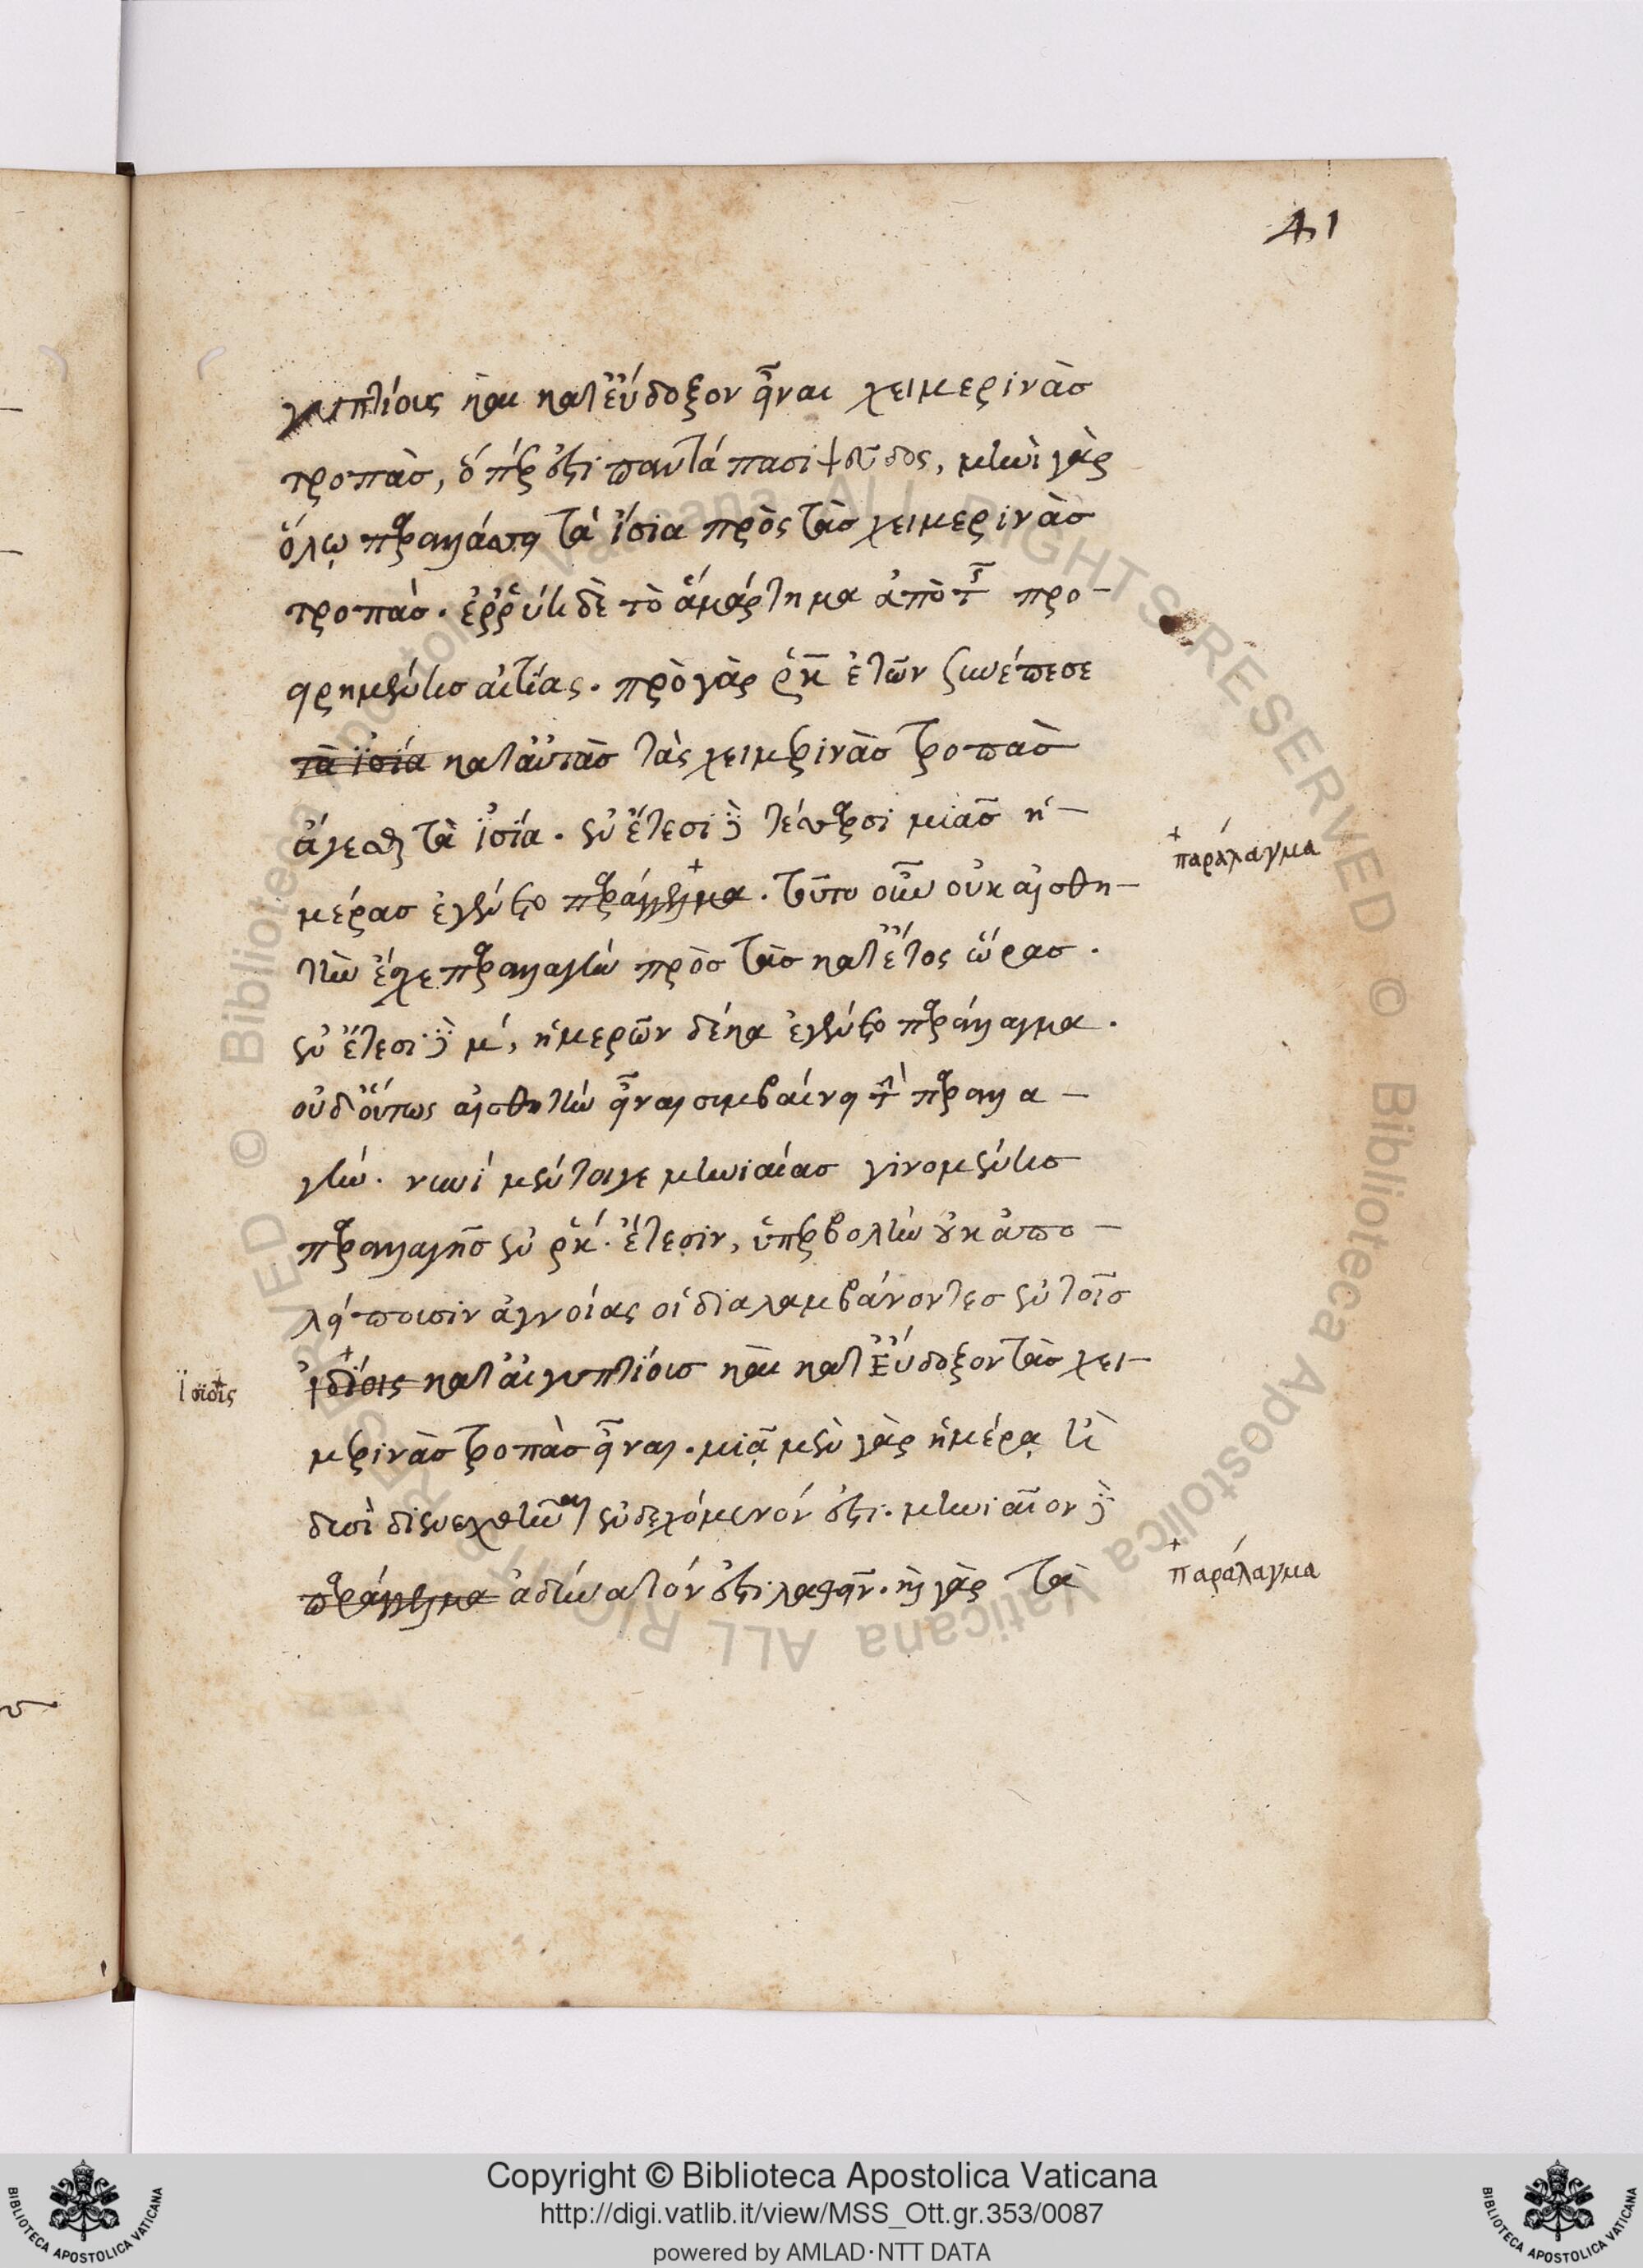 41
γυπτίους καὶ κατ' εὔδοξον εἶναι χειμερινὰσ
τροπὰσ, ὅπερ ἐστὶ παντάπασι ψεῦδος, μηνὶ γὰρ
ὅλῳ παραλλάττει τὰ ἴσια πρὸς τὰσ χειμερινὰσ
τροπάσ. ἐρρύη δὲ τὸ ἁμάρτημα ἀπὸ τῆς προ-
ειρημένησ αἰτίας. πρὸ γὰρ ρκ ἐτῶν συνέπεσε
τὰ ἰσία κατ' αὐτὰσ τὰς χειμερινὰσ τροπὰσ
ἄγεσθαι τὰ ἰσία. ἐν ἔτεσι δὲ τέτταρσι μιᾶσ ἡ-
μέρασ ἐγένετο παράλλαγμα. τοῦτο οὖν οὐκ αἰσθη-
τὴν ἔσχε παραλλαγὴν πρὸσ τὰσ κατ' ἔτος ὥρασ.
ἐν ἔτεσι δὲ μ', ἡμερῶν δέκα ἐγένετο παράλλαγμα.
οὐδ' οὕτως αἰσθητὴν εἶναι συμβαίνει τὴν παραλλα-
γήν. νυνὶ μέντοιγε μηνιαίασ γινομένησ
παραλλαγῆσ ἐν ρκ'. ἔτεσιν, ὑπερβολὴν οὐκ ἀπο-
λείπουσιν ἀγνοίας οἱ διαλαμβάνοντεσ ἐν τοῖσ
ἰσίσις
ἰδίοις κατ' αἰγυπτίουσ καὶ κατ' Εὔδοξον τὰσ χει-
μερινὰσ τροπὰσ εἶναι. μιᾷ μὲν γὰρ ἡμέρᾳ ἢ
δυσὶ διενεχθῆναι ἐνδεχόμενόν ἐστι. μηνιαῖον δὲ
παράλλαγμα ἀδύνατόν ἐστι λαθεῖν. καὶ γὰρ τὰ
παράλαγμα
παράλαγμα
Copyright © Biblioteca Apostolica Vaticana
http://digi.vatlib.it/view/MSS_Ott.gr.353/0087
powered by AMLAD·NTT DATA
BIBLIOTECA APOSTOLICA VATICANA
BIBLIOTECA APOSTOLICA VATICANA